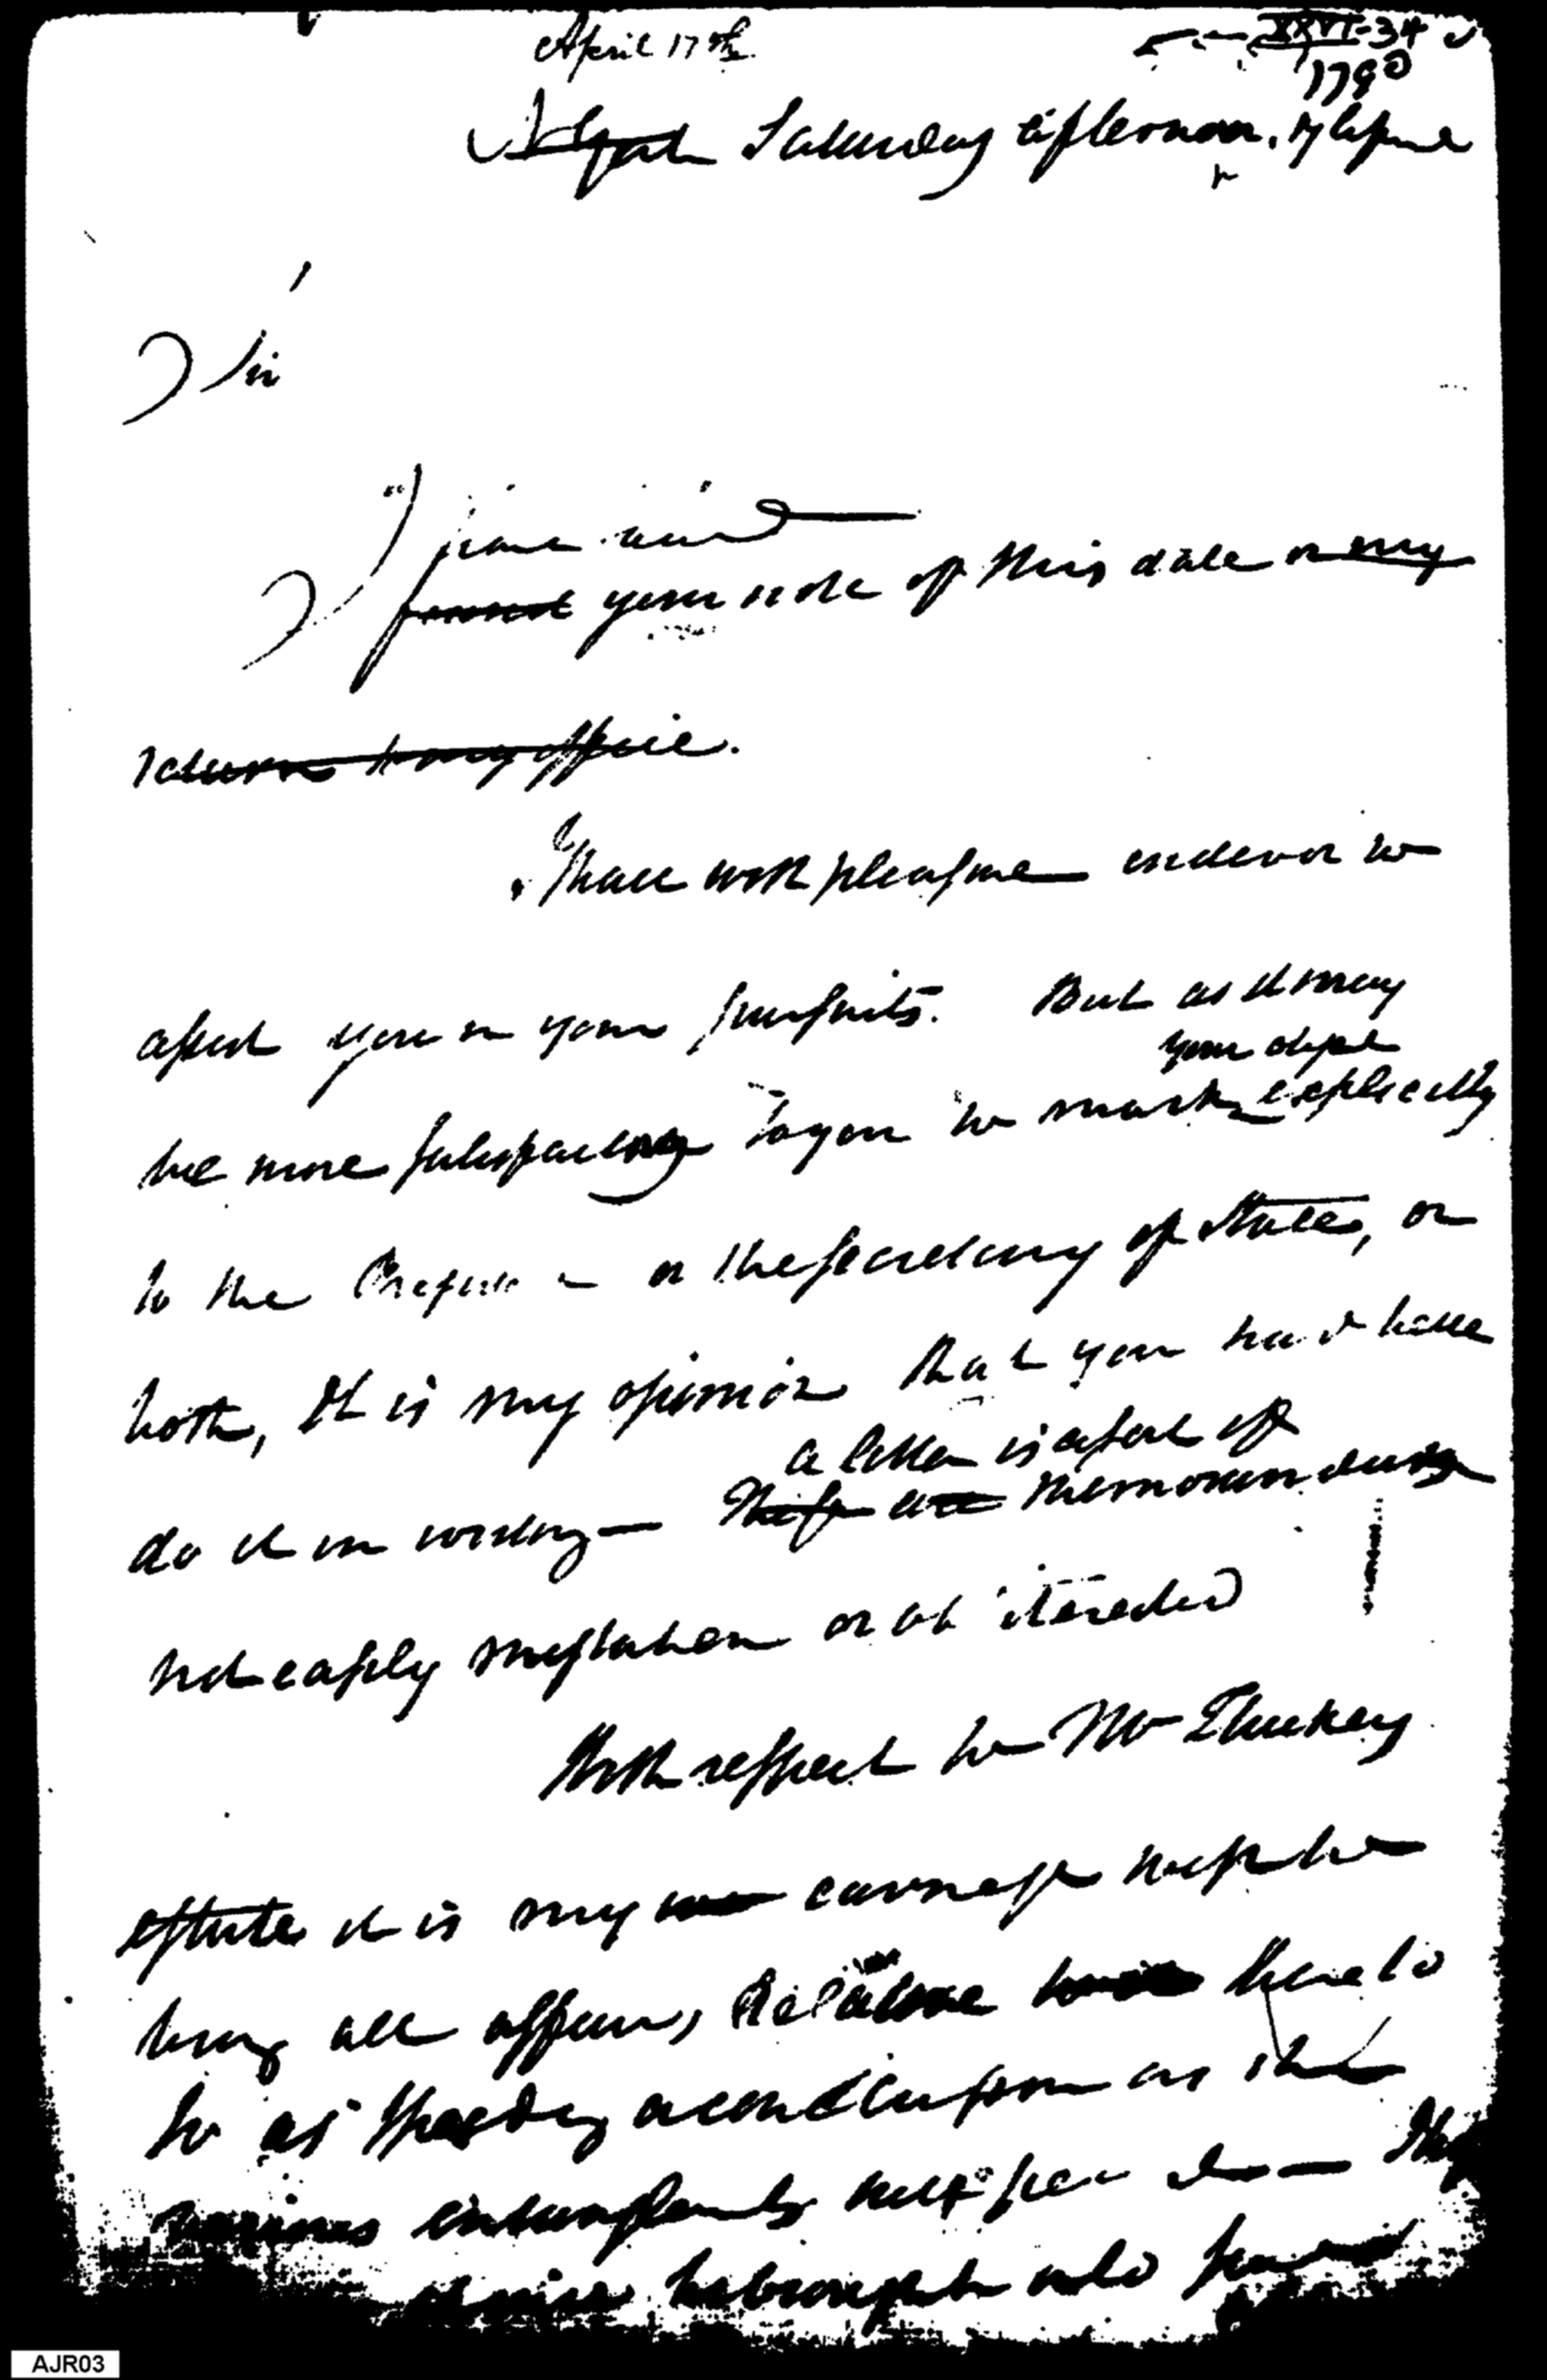 April 17th
XXVI-34
1790
N York Saturday afternoon. 17 April
Sir
I have rcvd
found your note of this date on my
return to my office.
I shall with pleasure endevor to
assist you in your pursuits. But as it may
your object
be more satisfactory to you to mark explicitly
to the President or the secretary of State, or
both, It is my opinion that you had better
a letter is a sort of
do it in writing — These are memorandum
not easily mistaken or obliterated
With respect to Mr Tluckey
estate it is my earnest wish to
bring all affairs, relative hereto
to as speedy a conclusion as the
various entanglements will permit —
to be brought into
AJR03